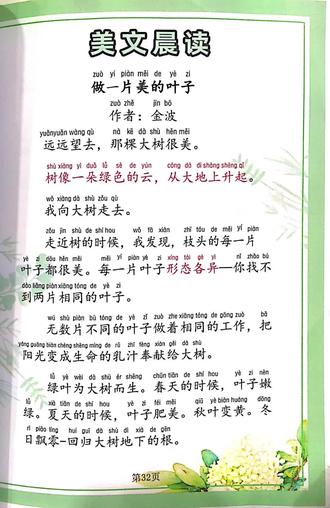 美文晨读
zuò yí piàn měi de yè zi
做一片美的叶子
zuò zhě jīn bō
作者：金波
yuǎnyuǎn wàng qù nà kē dà shù hěn měi
远远望去，那棵大树很美。
shù xiàng yì duǒ lǜ sè de yún cóng dà dì shàng shēng qǐ
树像一朵绿色的云，从大地上升起。
wǒ xiàng dà shù zǒu qù
我向大树走去。
zǒu jìn shù de shí hou wǒ fā xiàn zhī tóu de měi yí piàn
走近树的时候，我发现，枝头的每一片
yè zi dōu hěn měi měi yí piàn yè zi xíng tài gè yì nǐ zhǎo bú
叶子都很美。每一片叶子形态各异—你找不
dào liǎng piàn xiāng tóng de yè zi
到两片相同的叶子。
wú shù piàn bù tóng de yè zi zuò zhe xiāng tóng de gōng zuò bǎ
无数片不同的叶子做着相同的工作，把
yáng guāng biàn chéng shēng mìng de rǔ zhī fèng xiàn gěi dà shù
阳光变成生命的乳汁奉献给大树。
lǜ yè wèi dà shù ér shēng chūn tiān de shí hou yè zi nèn
绿叶为大树而生。春天的时候，叶子嫩
lǜ xià tiān de shí hou yè zi féi měi qiū yè biàn huáng dōng
绿。夏天的时候，叶子肥美。秋叶变黄。冬
rì piāo líng huí guī dà shù dì xià de gēn
日飘零—回归大树地下的根。
第32页